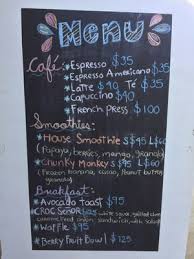 Menu
Café: Espresso $35
Espresso Americano $35
Latte $40 Té $35
Capuccino $40
French Press $100
Smoothies:
House Smoothie S$45 L$60
(Papaya, berries, mango, granola)
Chunky Monkey S L$60
(Frozen banana, cacao, Peanut butter, granola)
Breakfast:
Avocado Toast $95
CROC SEÑOR $125 white sauce, grilled
caramelized onion
Waffle $95
Berry Fruit Bowl $125